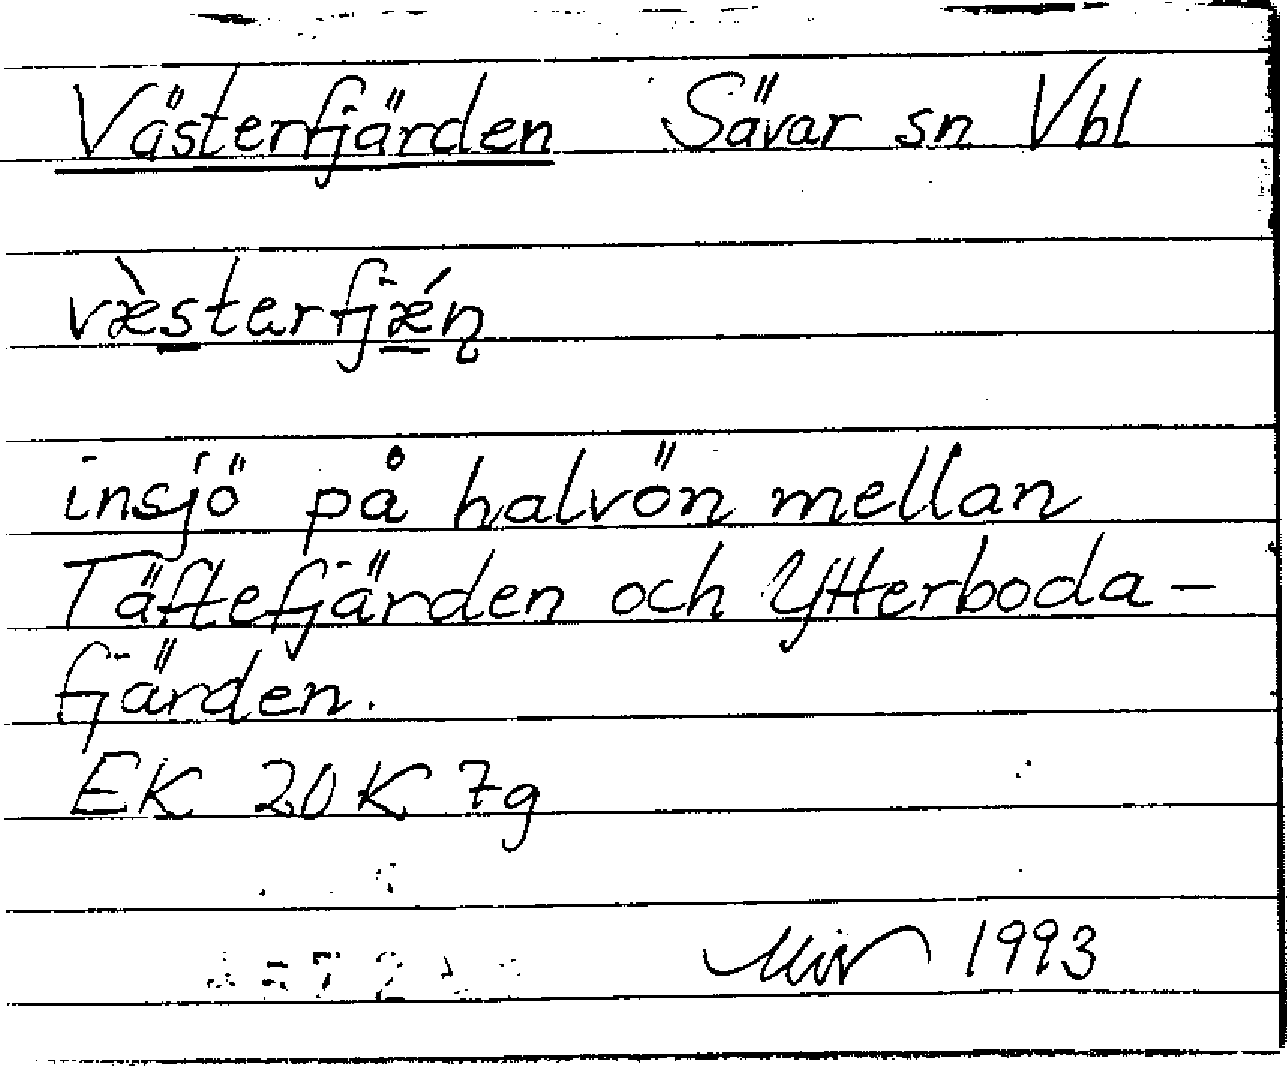 Västerfjärden Sävar sn Vbl
væ̀sterfjǽɳ
insjö på halvön mellan
Täftefjärden och Ytterboda-
fjärden.
EK 20K 7g
1993